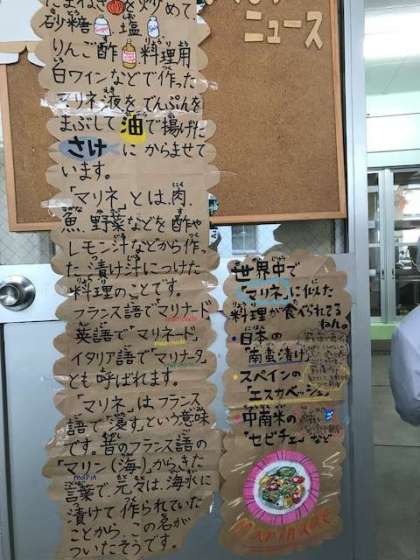 たまねぎを炒めて、
砂糖、塩、
りんご酢、料理用
白ワインなどで作った
マリネ液を、でんぷんを
まぶして油で揚げた
さけにからませて
います。
「マリネ」とは、肉、
魚、野菜などを酢や
レモン汁などから作っ
た漬け汁につけた
料理のことです。
フランス語で「マリナード」
英語で「マリネード」、
イタリア語で「マリナータ」
とも呼ばれます。
「マリネ」は、フランス
語で「浸す」という意味
です。昔のフランス語の
「マリン(海)」からきた
言葉で、元々は、海水に
漬けて作られていた
ことから、この名が
ついたそうです。
ニュース
世界中で
「マリネ」に似た
料理が食べられてる
ねん。
・日本の
「南蛮漬け」
・スペインの
「エスカベッシュ」
・中南米の
「セビチェ」など